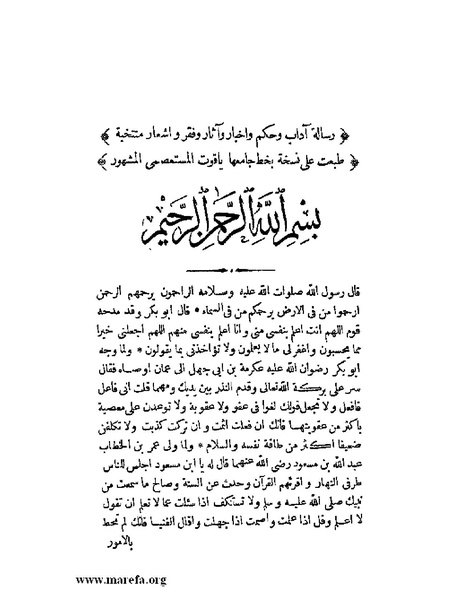 ﴿ رسالة آداب وحكم واخبار وآثار وفقر واشعار منتخبة ﴾
﴿ طبعت على نسخة بخط جامعها ياقوت المستعصمى المشهور ﴾
بِسْمِ ٱللّٰهِ ٱلرَّحْمٰنِ ٱلرَّحِيْمِ
قال رسول الله صلوات الله عليه وسلامه الراحمون يرحمهم الرحمن
ارحموا من فى الارض يرحمكم من فى السماء * قال ابو بكر وقد مدحه
قوم اللهم انت اعلم بنفسى منى وانا اعلم بنفسى منهم اللهم اجعلنى خيرا
مما يحسبون واغفر لى ما لا يعلمون ولا تؤاخذنى بما يقولون * ولما وجه
ابو بكر رضوان الله عليه عكرمة بن ابى جهل الى عمان اوصاه فقال
سر على بركة الله تعالى وقدم النذر بين يديك ومهما قلت انى فاعل
فافعل ولا تجعل قولك لغوا فى عفو ولا عقوبة ولا توعدن على معصية
باكثر من عقوبتها فانك ان فعلت اثمت وان تركت كذبت ولا تكلفن
ضعيفا اكثر من طاقة نفسه والسلام * ولما ولى عمر بن الخطاب
عبد الله بن مسعود رضى الله عنهما قال له يا ابن مسعود اجلس للناس
طرفى النهار واقرئهم القرآن وحدث عن السنة وصالح ما سمعت من
نبيك صلى الله عليه وسلم ولا تستنكف اذا سئلت عما لا تعلم ان تقول
لا اعلم وقل اذا علمت واصمت اذا جهلت واقلل الفتيا فانك لم تحط
بالامور
www.marefa.org